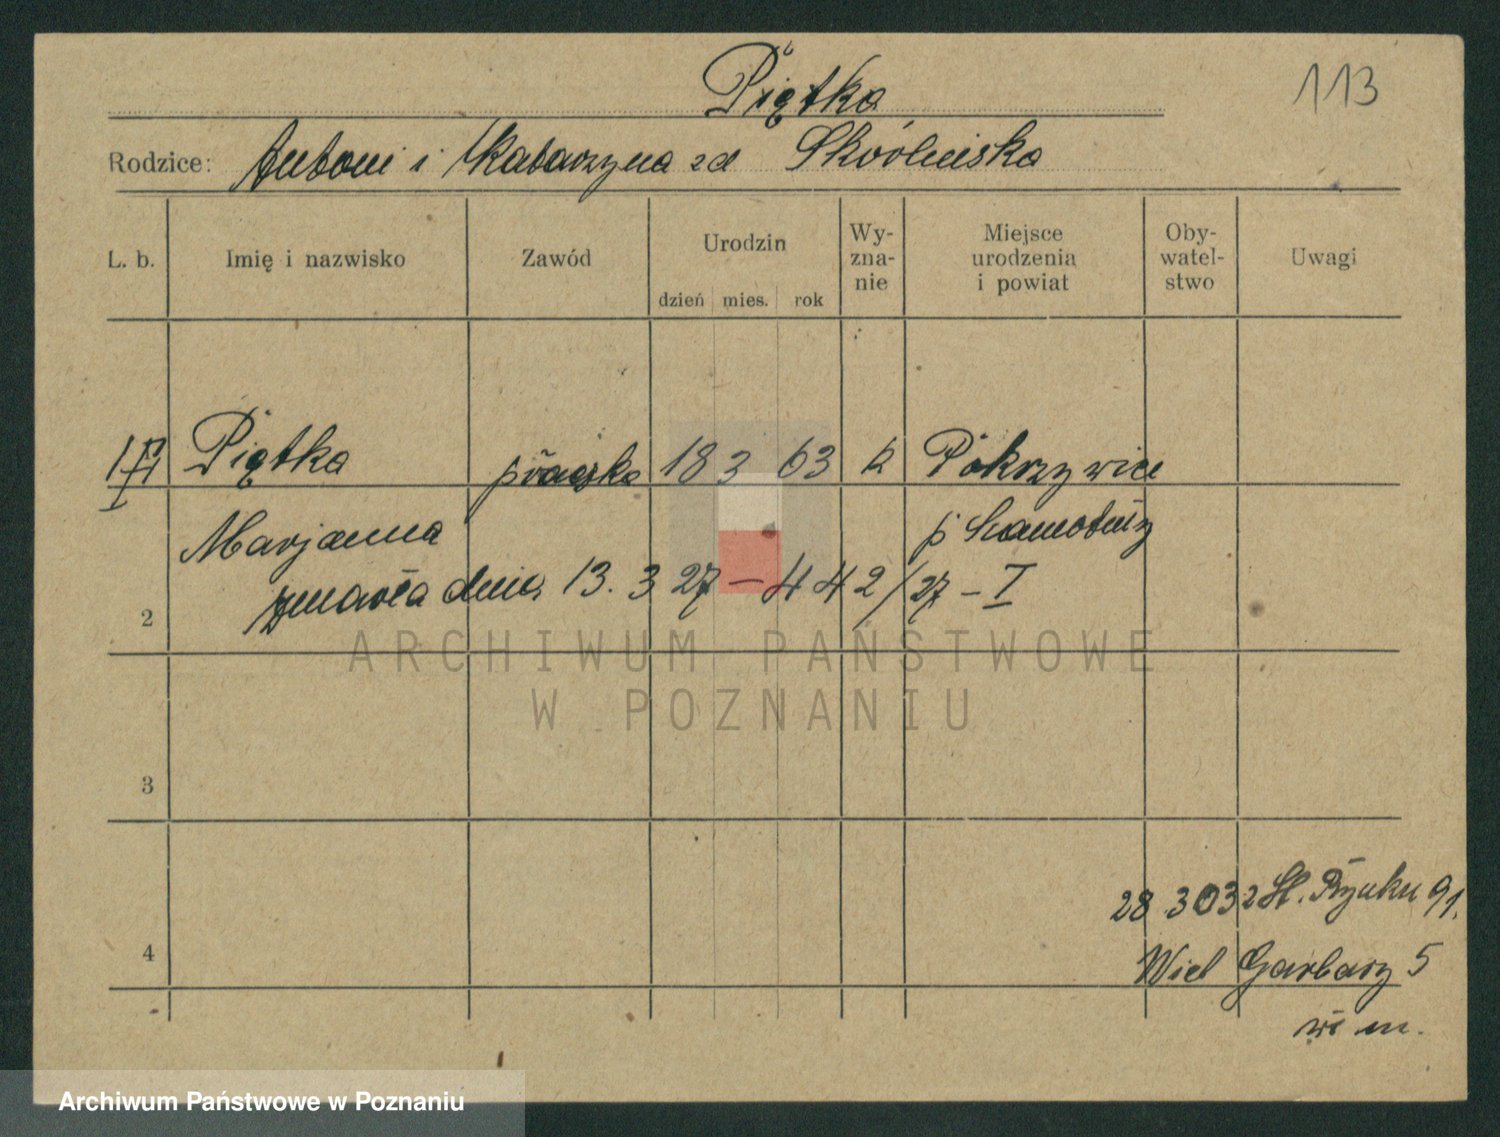 Piątka
113
Rodzice: Antoni i Katarzyna zd Skórlińska
L. b. Imię i nazwisko Zawód Urodzin dzień mies. rok Wy-zna-nie Miejsce urodzenia i powiat Oby-watel-stwo Uwagi
1 Piątka praczka 18 3 63 k Pokrzywice
Marjanna p Szamotuły
zmarła dnia 13. 3 27 – 442/27 – I
2
3
28 3032 St. Rynku 91.
4 Wiel Garbary 5
w m.
ARCHIWUM PAŃSTWOWE
W POZNANIU
Archiwum Państwowe w Poznaniu